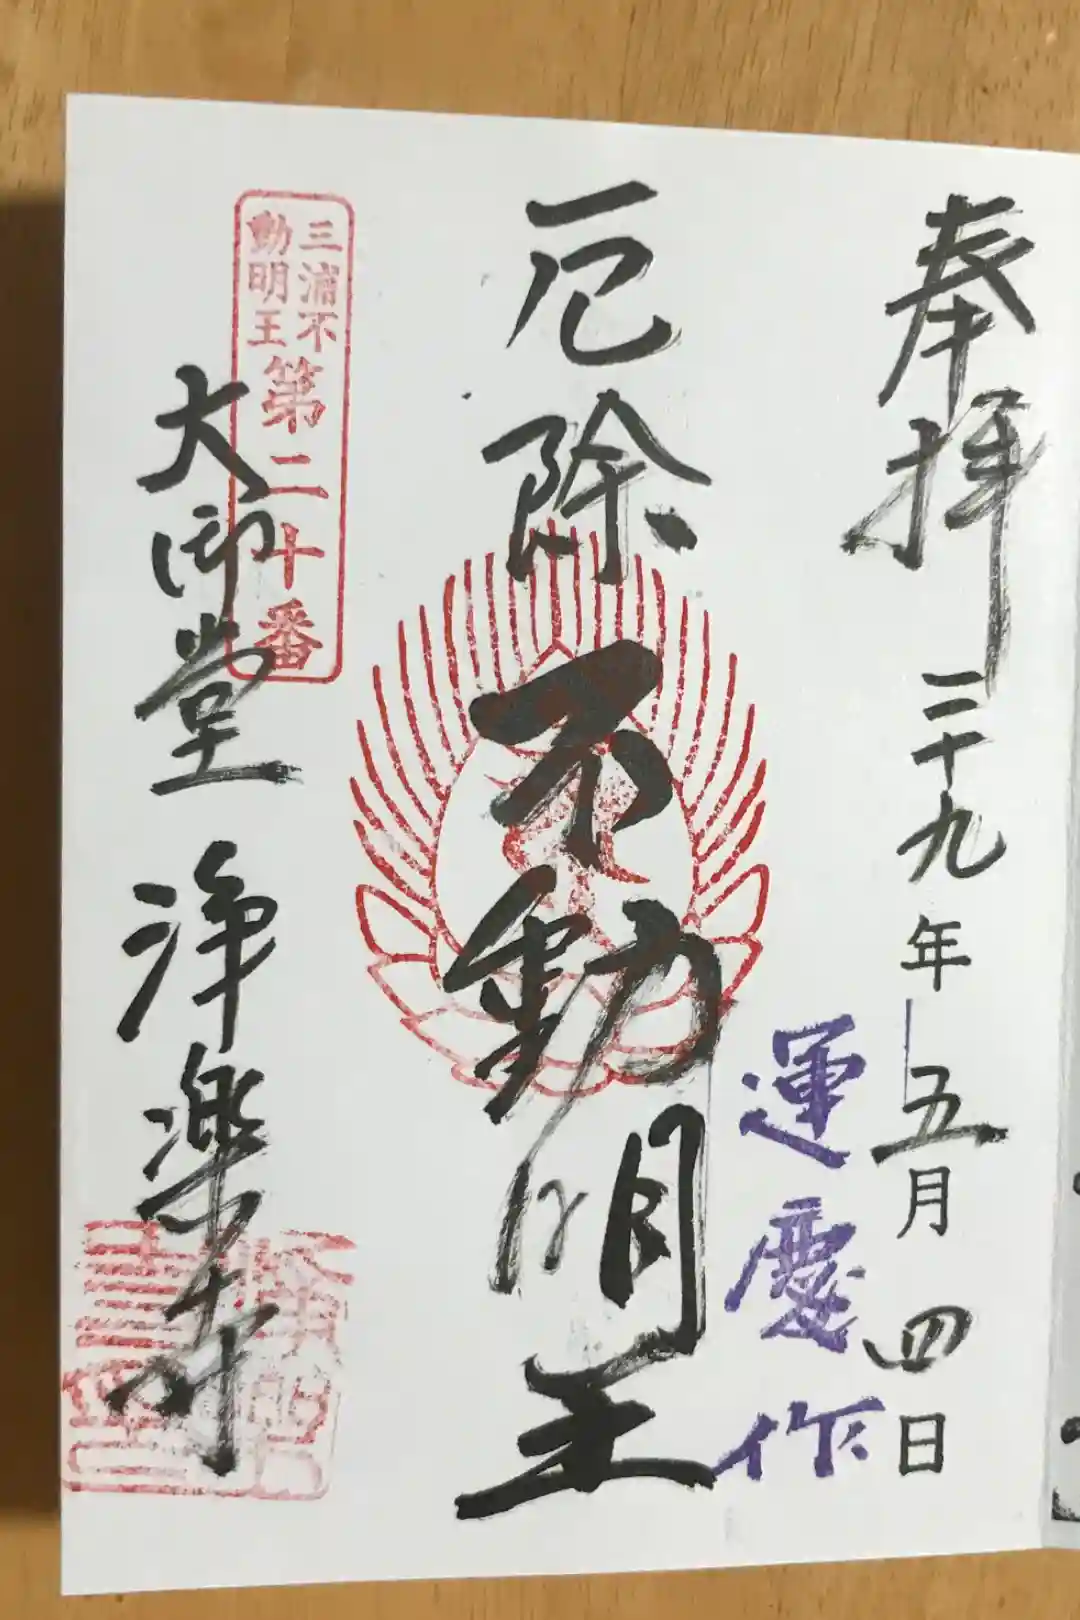 奉拝 二十九年五月四日
運慶作
厄除 不動明王
三浦不
動明王
第二十番
大師堂 浄楽寺